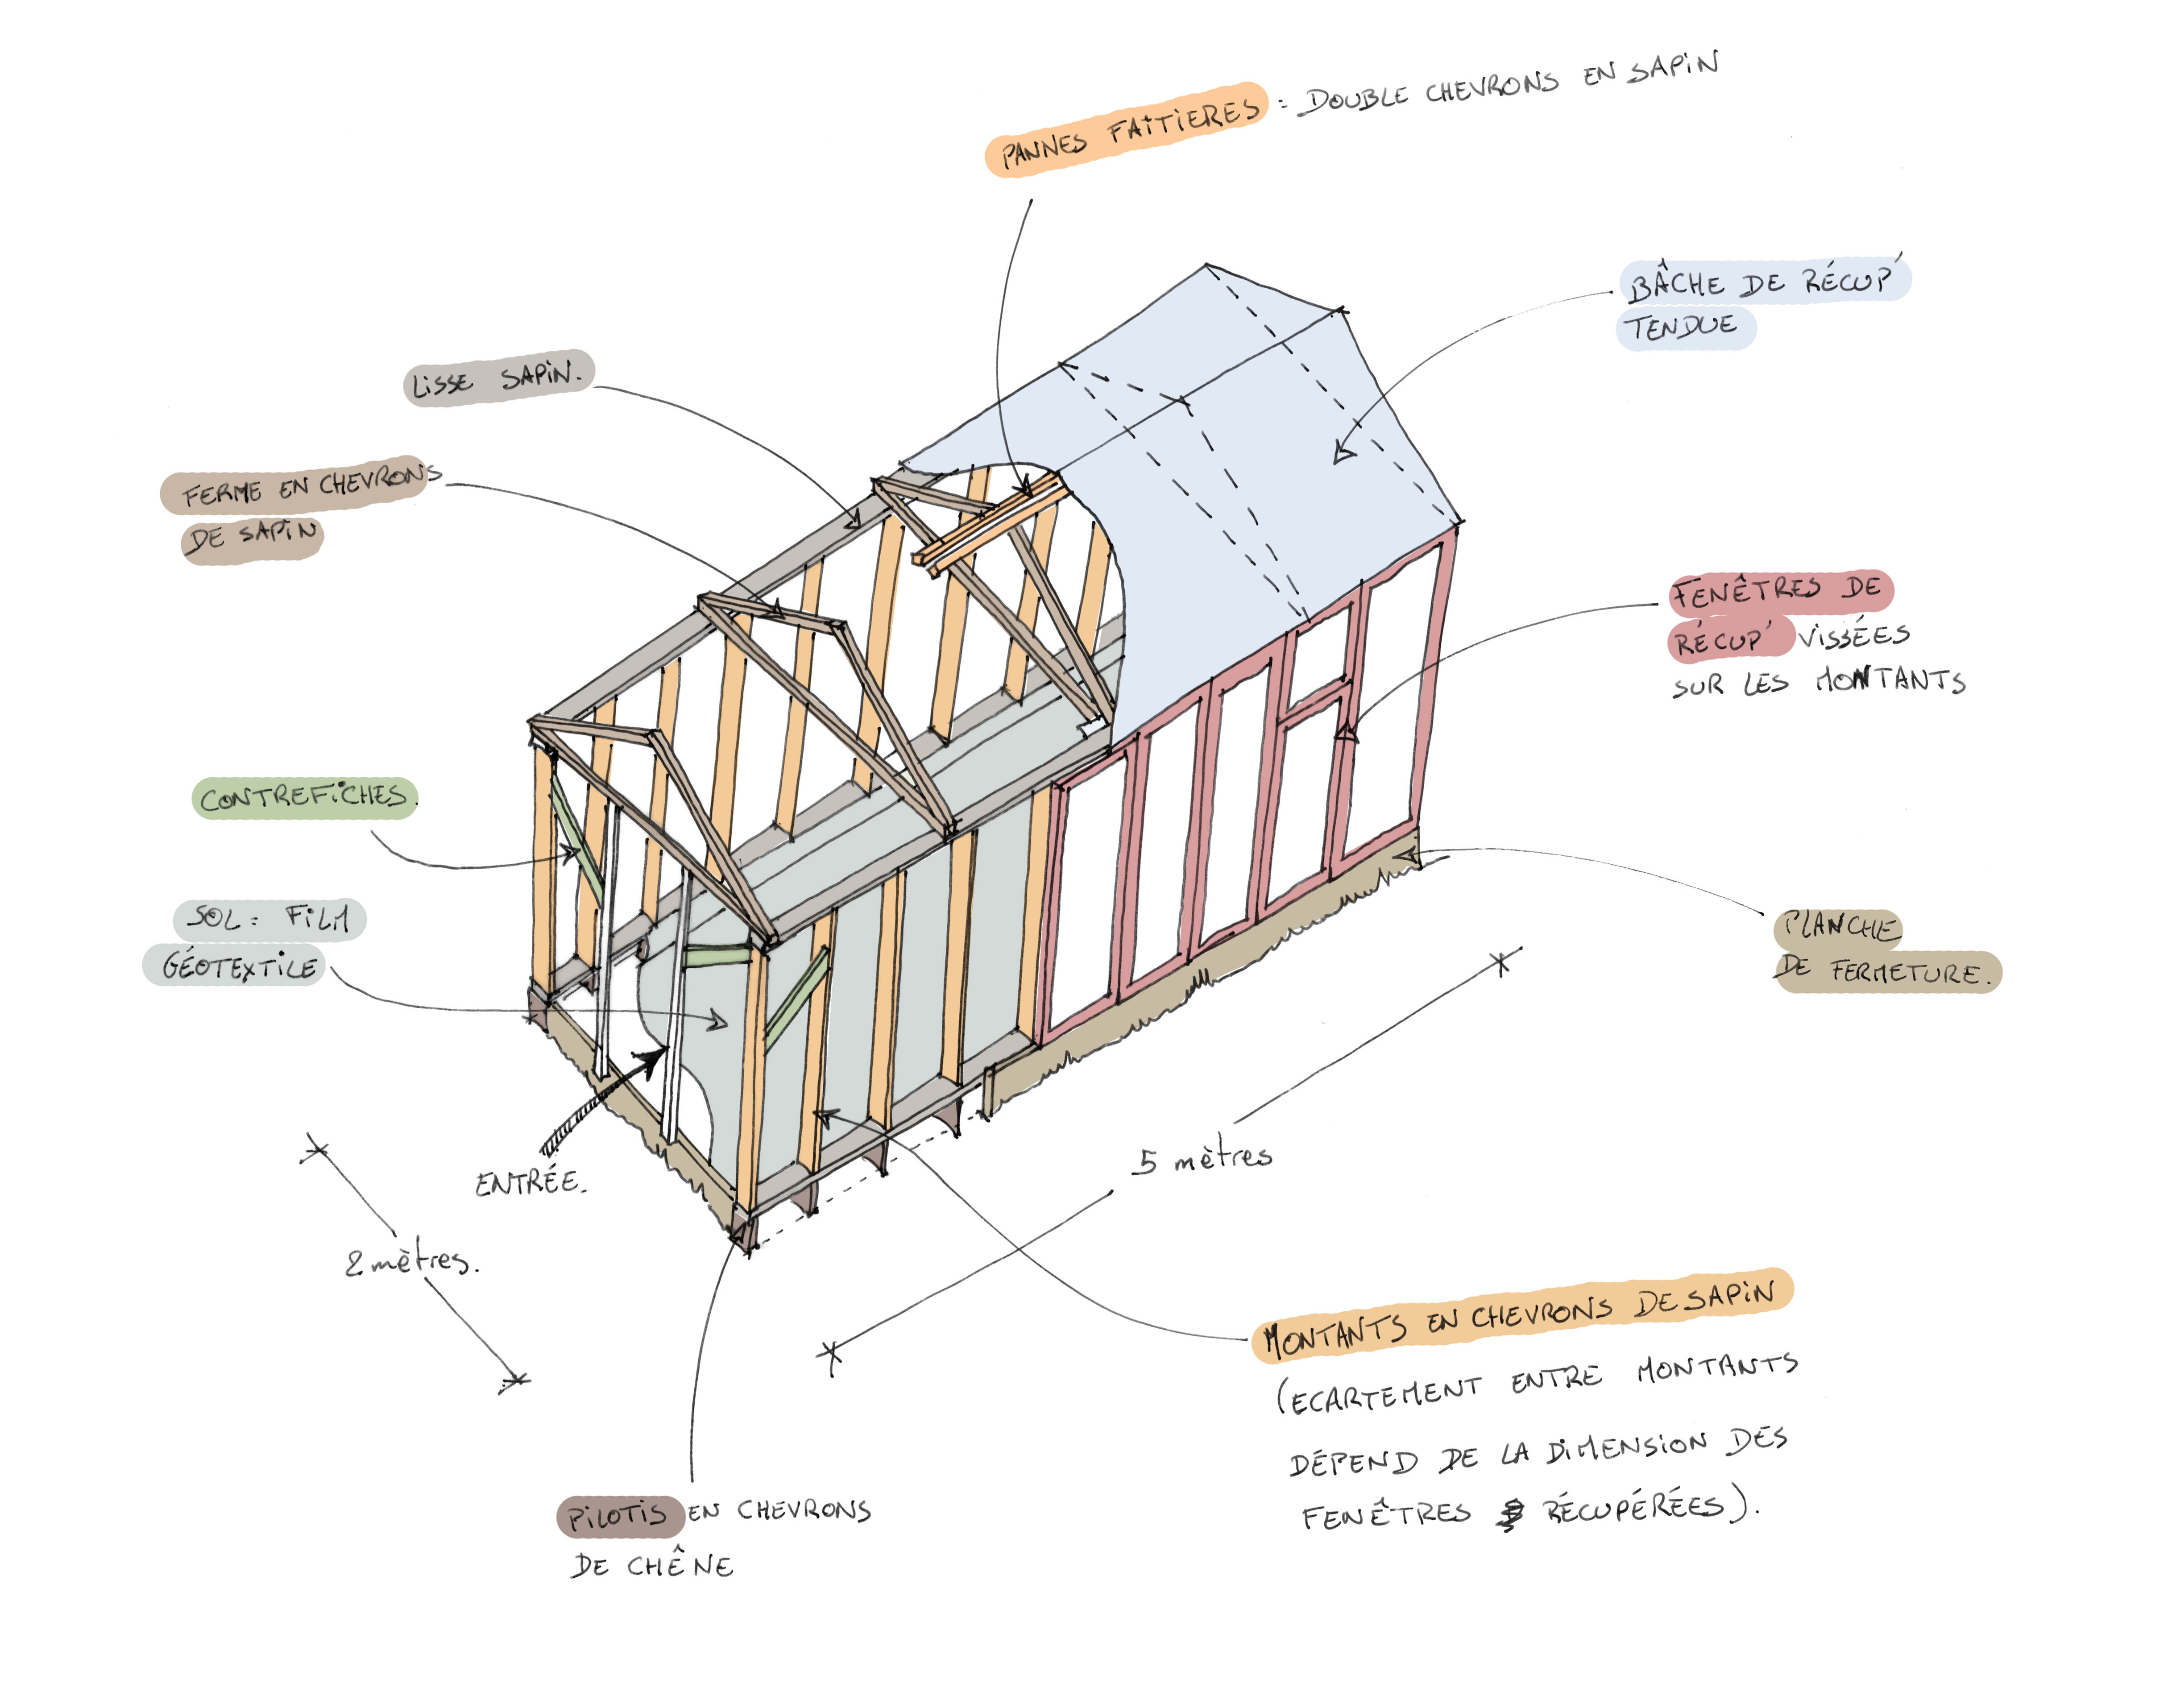 PANNES FAÎTIERES : DOUBLE CHEVRONS EN SAPIN
BÂCHE DE RÉCUP'
TENDUE
LISSE SAPIN.
FERME EN CHEVRONS
DE SAPIN
FENÊTRES DE
RÉCUP' VISSÉES
SUR LES MONTANTS
CONTREFICHES.
SOL : FILM
GÉOTEXTILE
PLANCHE
DE FERMETURE.
ENTRÉE.
5 mètres
2 mètres.
MONTANTS EN CHEVRONS DE SAPIN
(ECARTEMENT ENTRE MONTANTS
DÉPEND DE LA DIMENSION DES
FENÊTRES RÉCUPÉRÉES).
PILOTIS EN CHEVRONS
DE CHÊNE